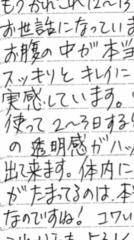 もうかれこれ12~13
お世話になっていま
お腹の中が本当
スッキリとキレイに
実感しています。
使って2~3日する
の透明感がハッ
出て来ます。体内に
がたまってるのは、本
なのですね!コワい